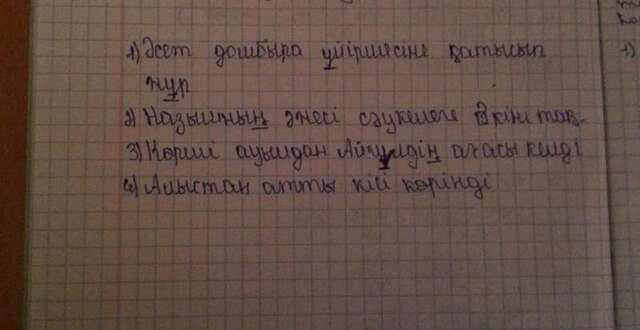 1) Әсет домбыра үйірмесіне қатысып
жүр
2) Назымның әжесі сәукелеге әкіні тақ.
3) Көрші ауылдан Айгүлдің ағасы келді
4) Алыстан атты кісі көрінді